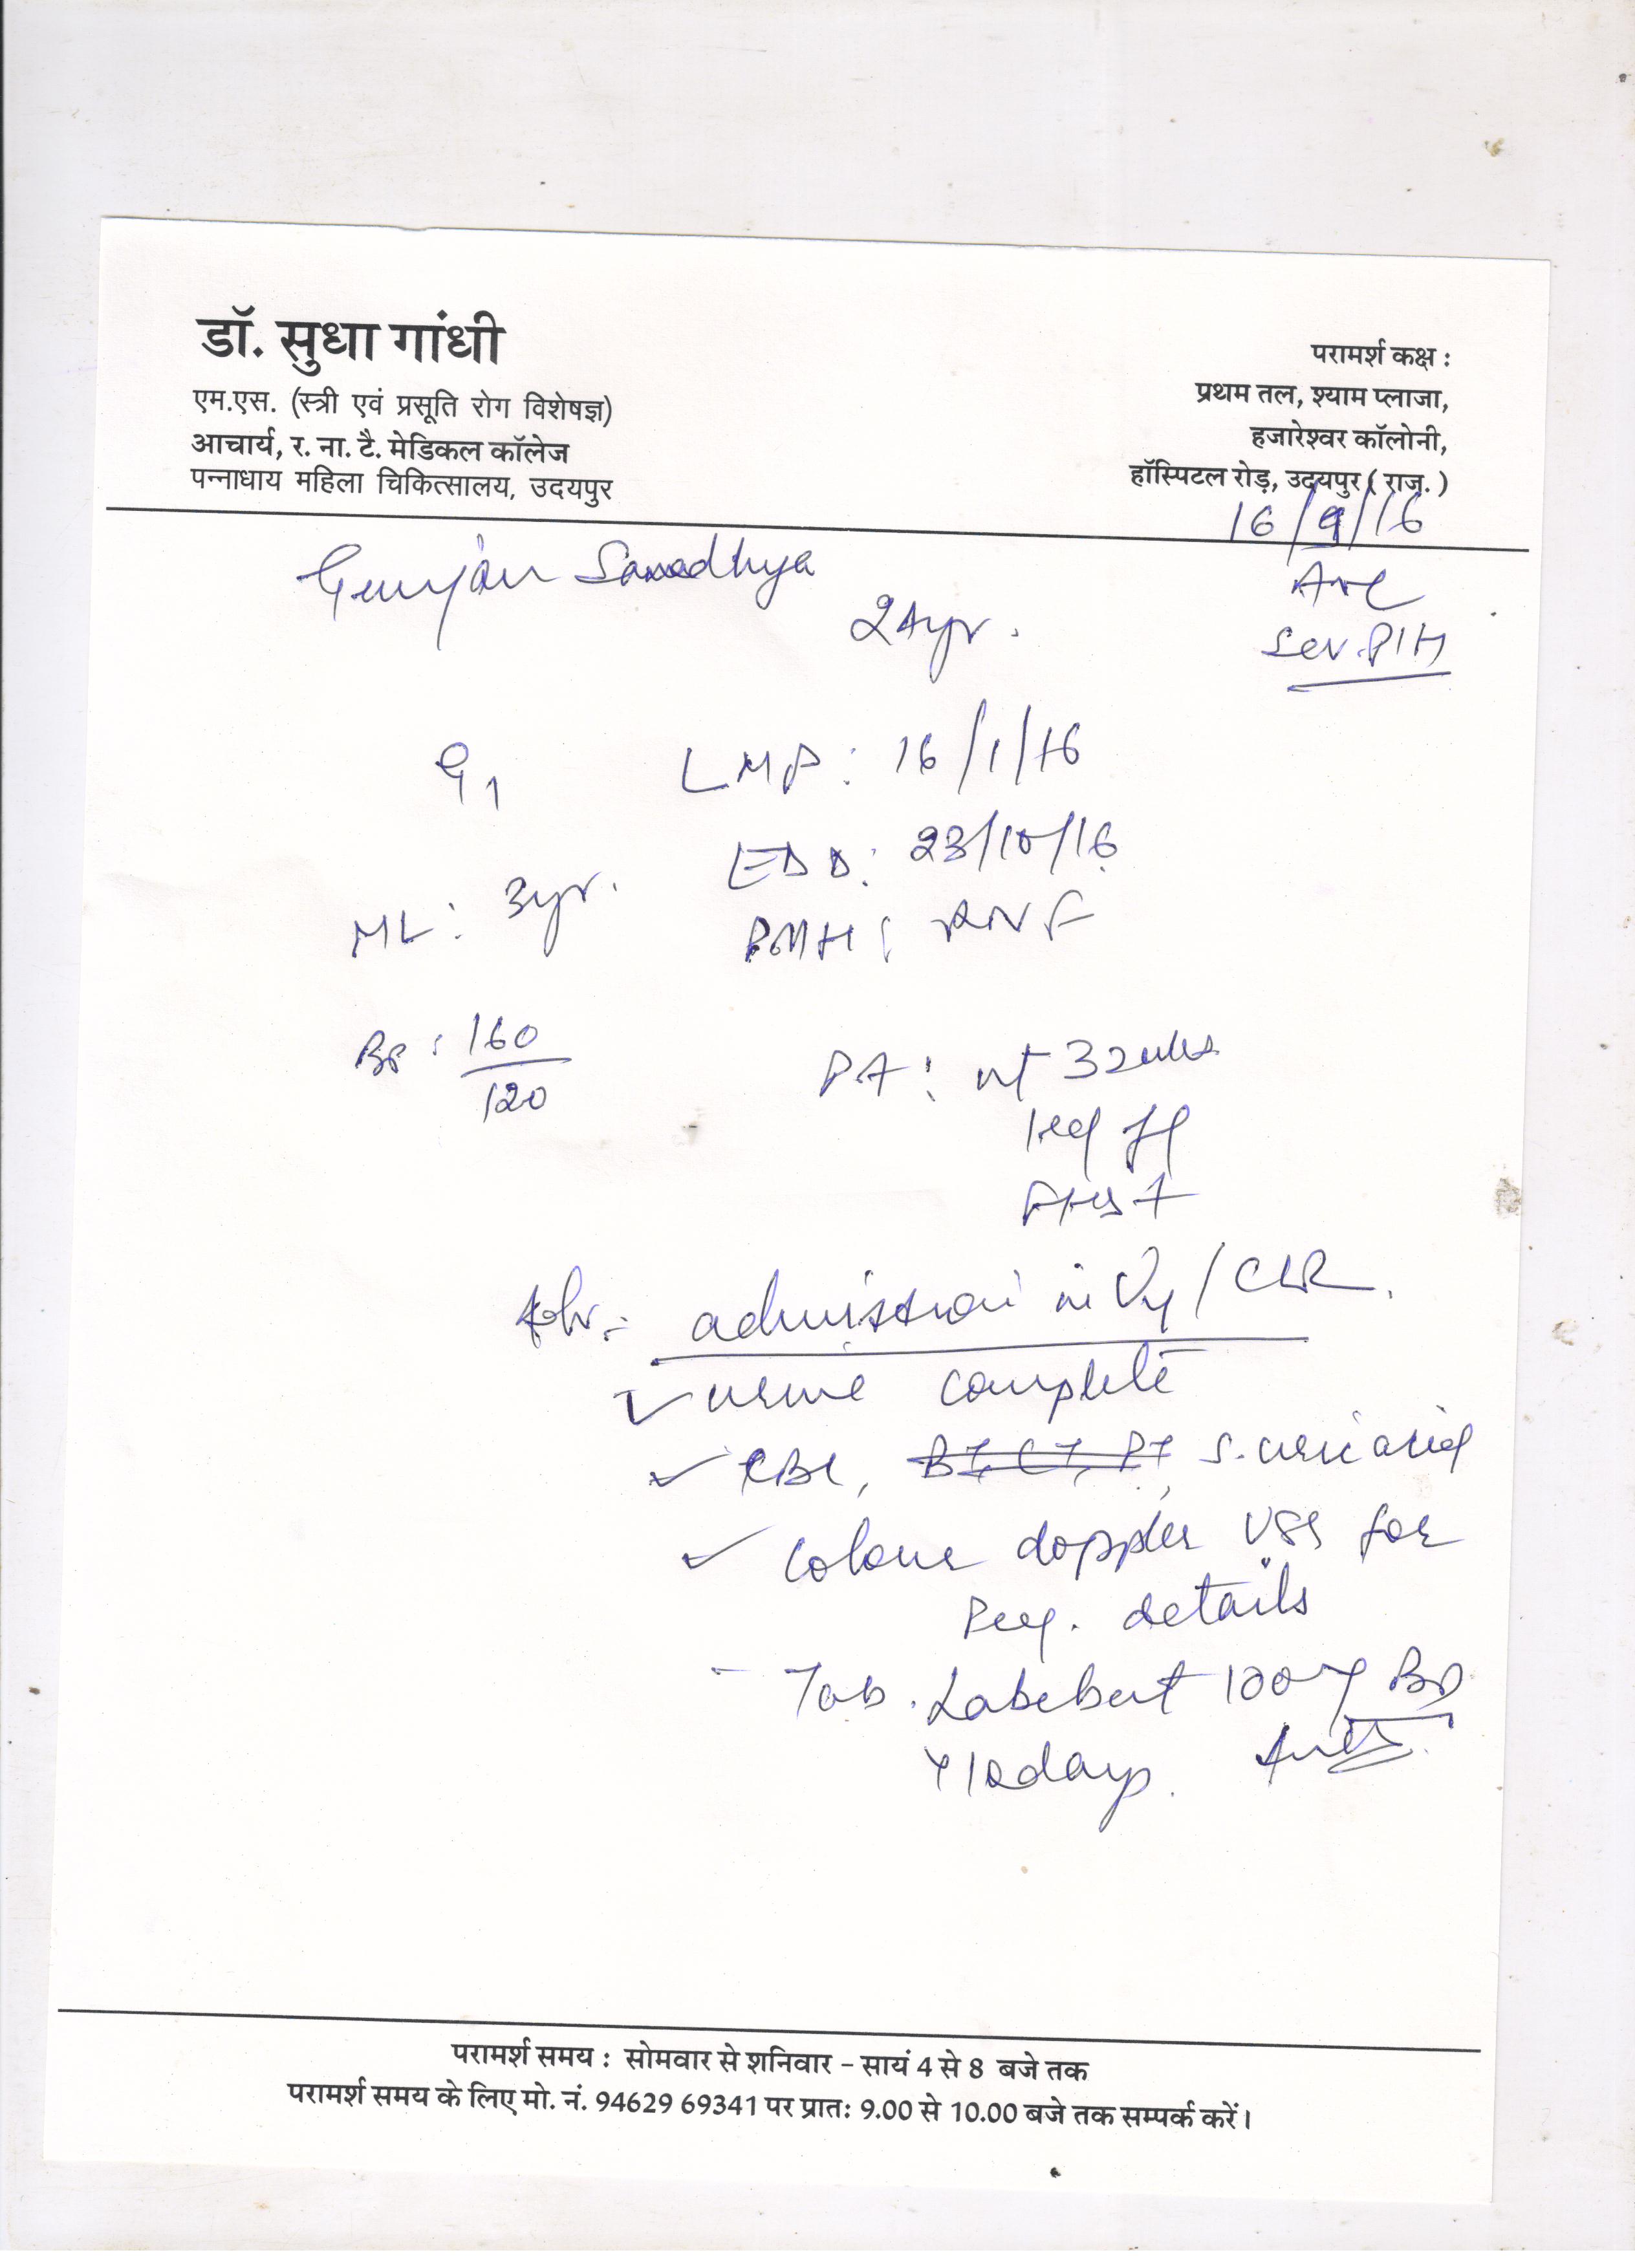 डॉ. सुधा गांधी
एम.एस. (स्त्री एवं प्रसूति रोग विशेषज्ञ)
आचार्य, र. ना. टै. मेडिकल कॉलेज
पन्नाधाय महिला चिकित्सालय, उदयपुर
परामर्श कक्ष :
प्रथम तल, श्याम प्लाजा,
हजारेश्वर कॉलोनी,
हॉस्पिटल रोड़, उदयपुर ( राज. )
16/9/16
Gunjan Sanadhya
24yr.
Anc
Sev. PIH
G1
LMP : 16/1/16
EDD : 23/10/16
ML : 3yr.
PMH :
BP : 160/120
PA : ut 32wks
FHS +
Adv :- admission in / CLR.
✓ urine complete
✓ CBC, BT, CT, PT, S. uric acid
✓ Colour doppler USG for
Preg. details
- Tab. Labebet 100mg BD
days.
परामर्श समय : सोमवार से शनिवार - सायं 4 से 8 बजे तक
परामर्श समय के लिए मो. नं. 94629 69341 पर प्रातः 9.00 से 10.00 बजे तक सम्पर्क करें।